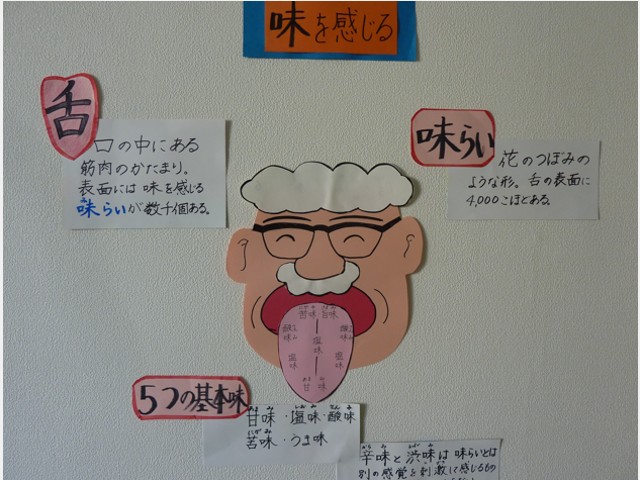 味を感じる
舌
口の中にある
筋肉のかたまり。
表面には味を感じる
味らいが数千個ある。
味らい
花のつぼみの
ような形。舌の表面に
4,000こほどある。
苦味 旨味
酸味 塩味 酸味
塩味 塩味
甘味
5つの基本味
甘味・塩味・酸味
苦味・うま味
辛味と渋味は味らいとは
別の感覚を刺激して感じるもの